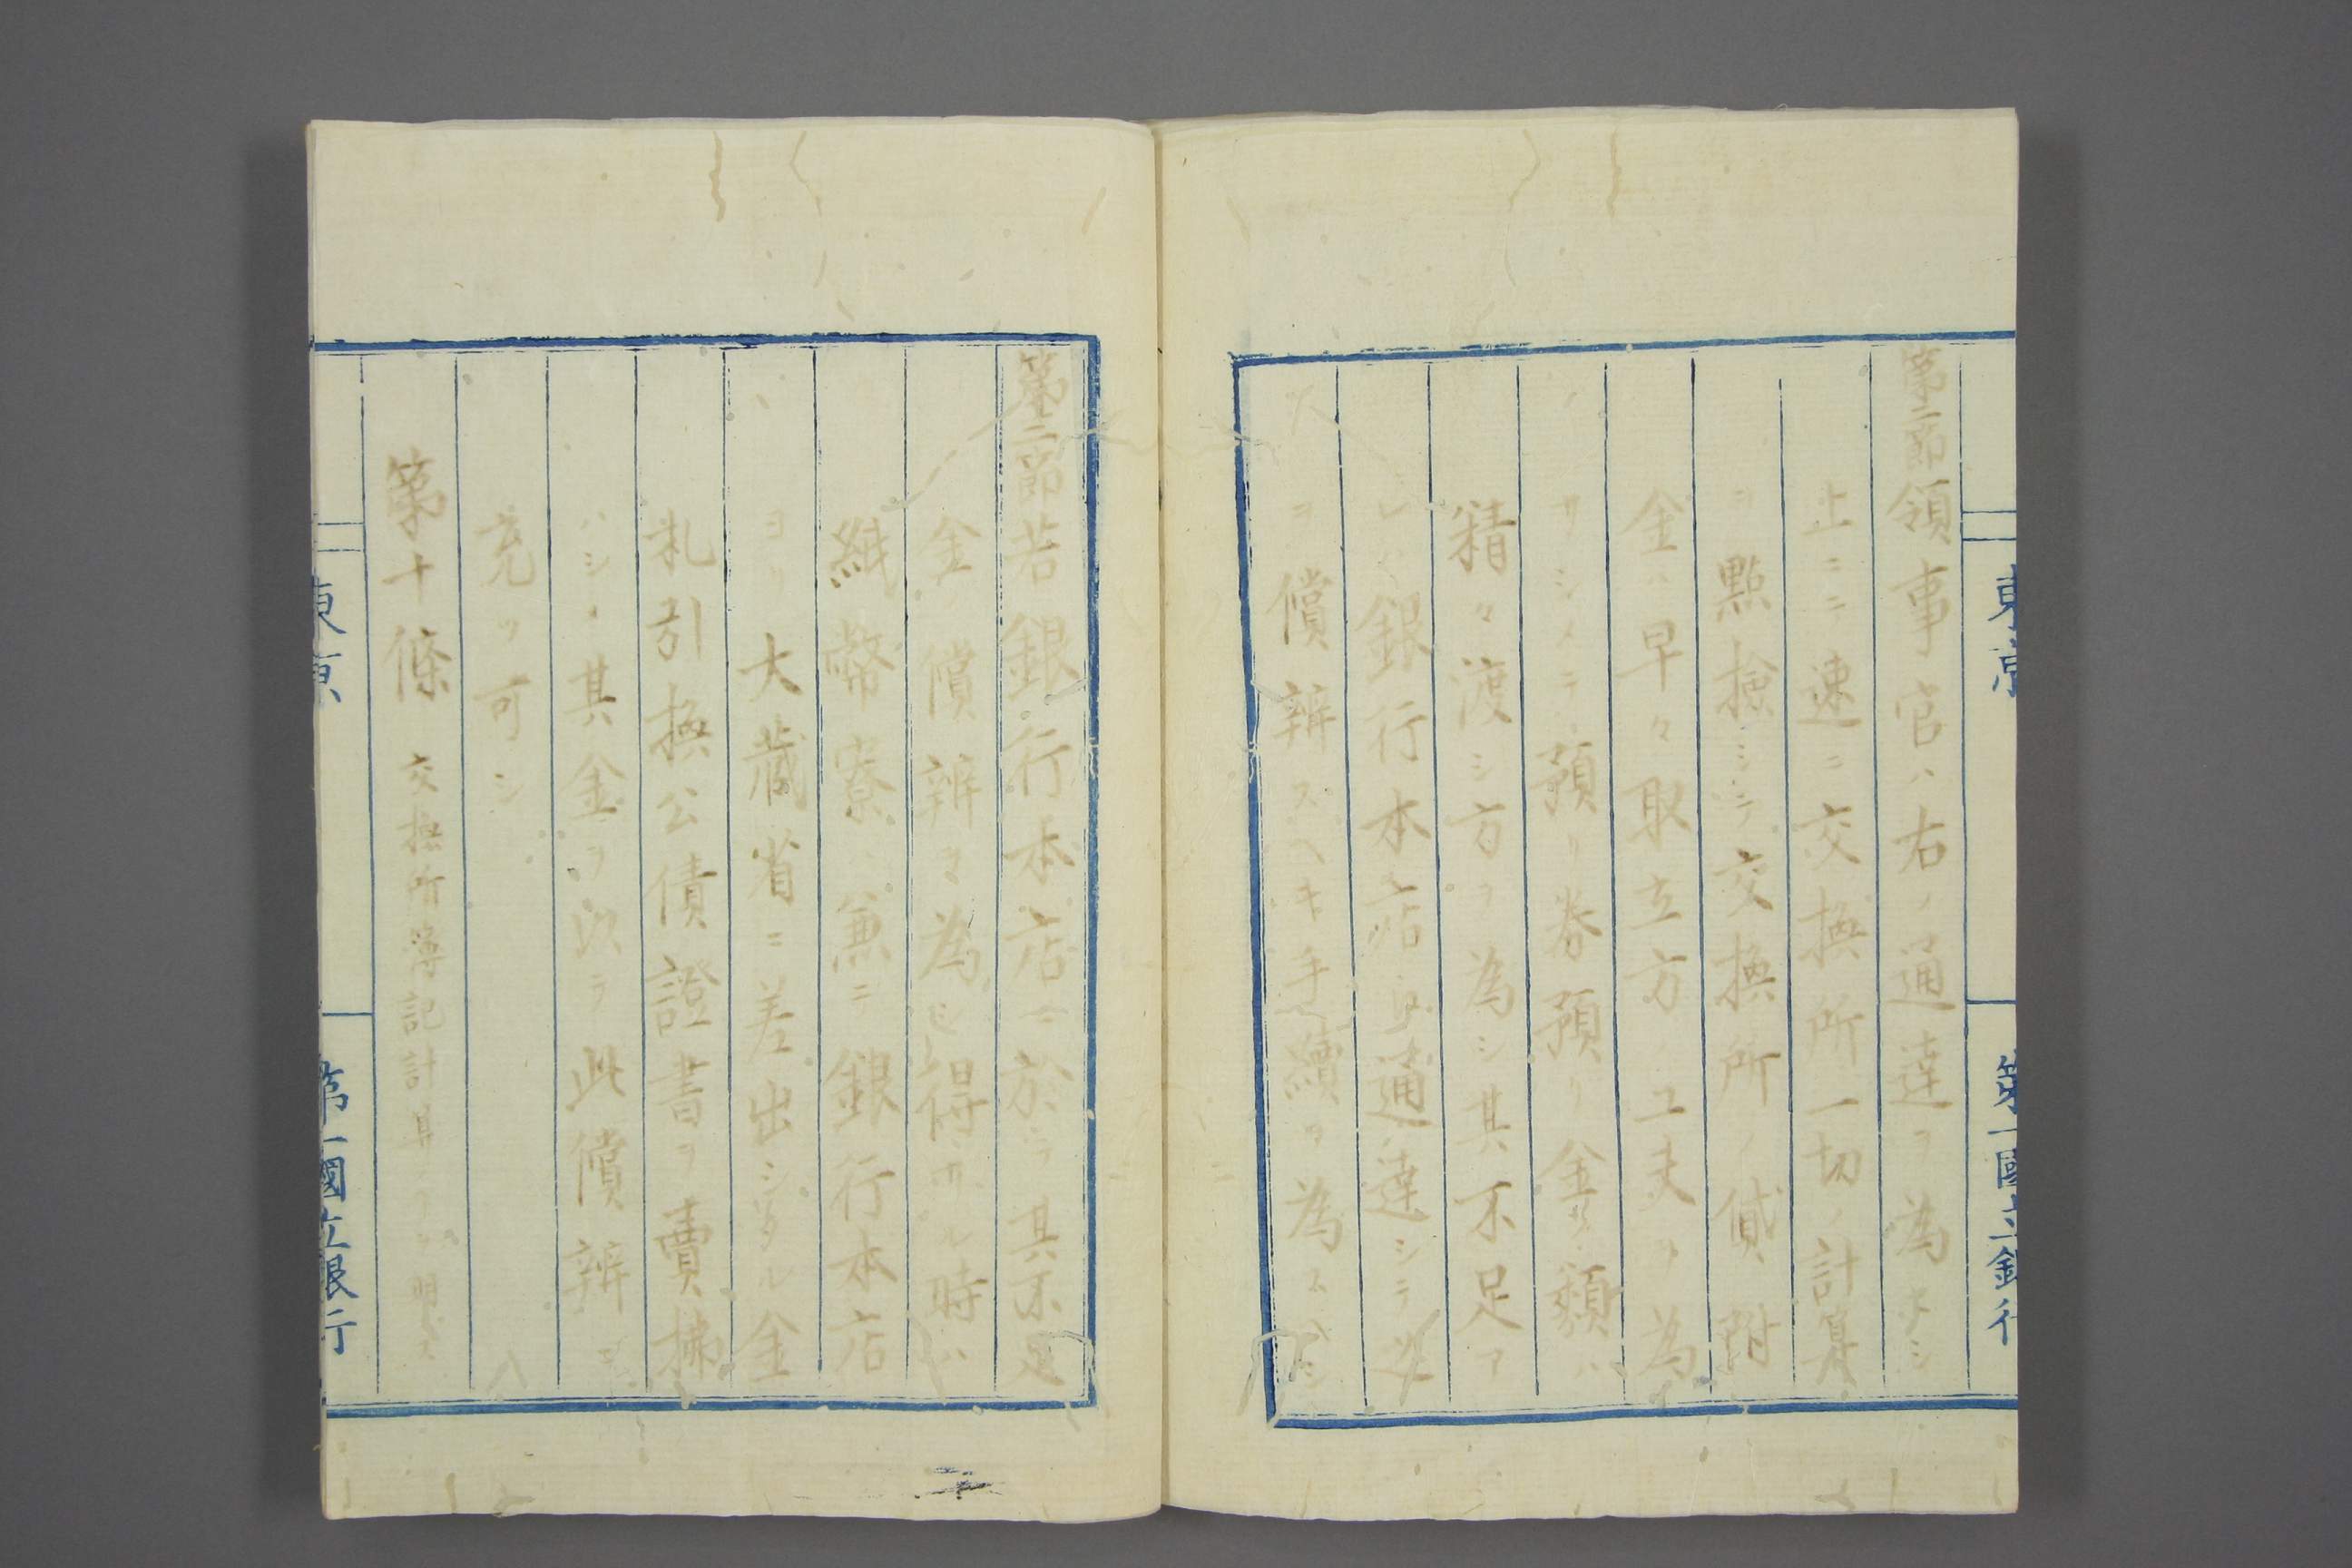 東京
第一國立銀行
第二節領事官ハ右ノ通達ヲ為
止ニテ速ニ交換所一切ノ計算
ヲ點撿シテ交換所ノ貸附
金ハ早々取立方ノ工夫ヲ為
サシメテ預リ券預リ金ノ類ハ
精々渡シ方ヲ為シ其不足ア
レハ銀行本店通達シテ
ヲ償辨スヘキ手續ヲ為
第三節若銀行本店ニ於テ其不足
金ノ償辨ヲ為シ得サル時ハ
紙幣寮ハ兼ニ銀行本店
ヨリ大藏省ニ差出シタル金
札引換公債證書ヲ賣拂
ハシメ其金ヲ以テ此償辨ニ
充ツ可シ
第十條 交換所簿記計算ノ明ス
東京
第一國立銀行